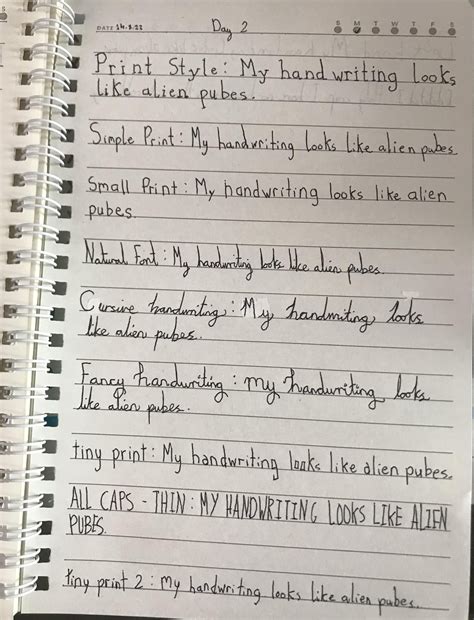 DATE 24.8.22 Day 2 S M T W T F S
Print Style: My handwriting looks
like alien pubes.
Simple Print: My handwriting looks like alien pubes
Small Print: My handwriting looks like alien
pubes.
Natural Font: My handwriting looks like alien pubes.
Cursive handwriting: My handwriting looks
like alien pubes.
Fancy handwriting: my handwriting looks
like alien pubes.
tiny print: My handwriting looks like alien pubes.
ALL CAPS - THIN: MY HANDWRITING LOOKS LIKE ALIEN
PUBES.
tiny print 2: My handwriting looks like alien pubes.